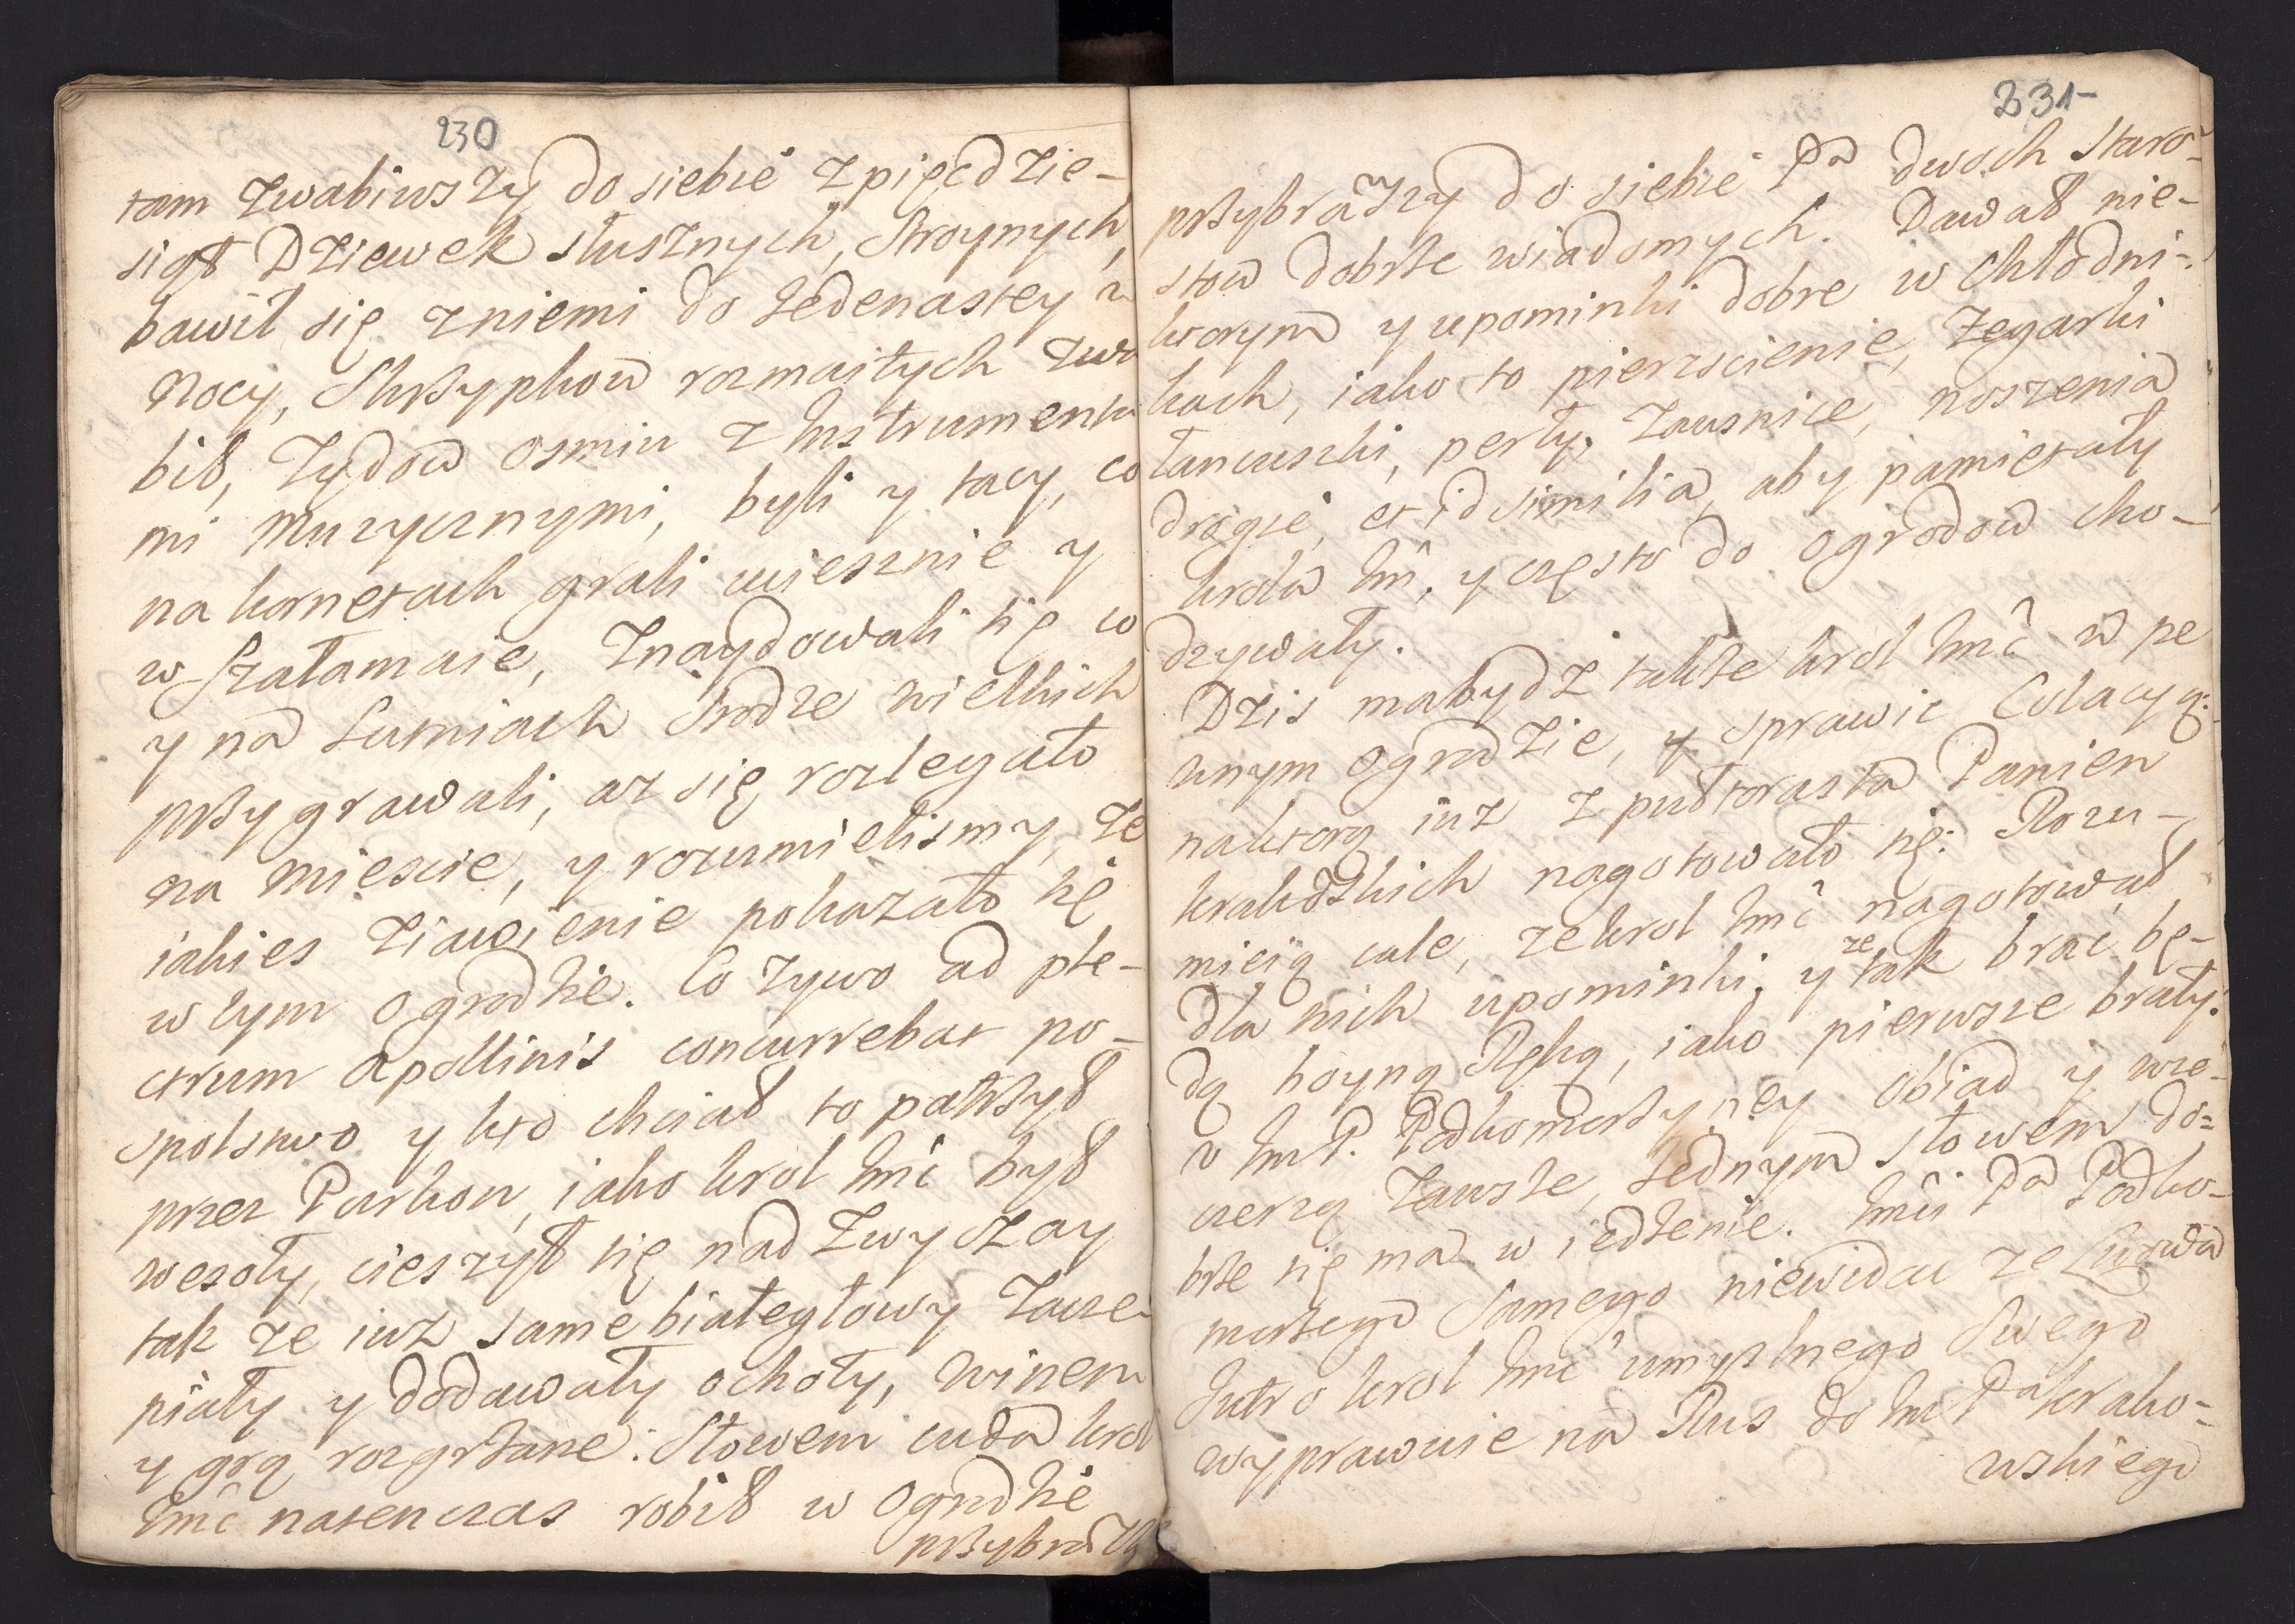 230
tam zwabiwszy do siebie z pięćdzie-
siąt Dziewek słusznych, stroynych,
bawił się z niemi do Jedenastey w
Nocy, Skrzypkow rozmaitych zwa
bił, Zydow osmiu z Instrumenta
mi Muzycznymi, byli y tacy, co
na kornetach grali uciesznie y
w Szałamaie, Znaydowali się co
y na Surmach srodze wielkich
przygrawali, az się rozlegało
na miescie, y rozumielismy, ze
iakies Ziawienie pokazało się
w tym ogrodzie. Co zywo ad ple-
ctrum Apollinis concurrebat po-
spolstwo y kto chciał to patrzył
przez Parkan, iako krol Imć był
wesoły, cieszył się nad Zwyczay
tak ze iuz same białegłowy Zacze-
piały y dodawały ochoty, winem
y grą rozgrzane. Słowem cuda krol
Imć natenczas robił w Ogrodzie
przybrawszy
231
przybrawszy do siebie Pa dwoch Staro-
stow dobrze wiadomych. Dawał nie-
ktorym y upominki dobre w chłodni-
kach, iako to pierscienie, Zegarki
łancuszki, perły, Zausnice, noszenia
drogie, et id similia, aby pamietały
krola Im, y często do ogrodow cho-
dzywały.
Dzis ma bydz takze krol Imć w pe
wnym ogrodzie, y sprawic Colacyą:
na ktorą iuz z pułtorasta Panien
krakowskich nagotowało się. Rozu-
mieią cale, ze krol Imć nagotował
dla nich upominki, y ze tak brac bę-
dą hoyną Ręką, iako pierwsze brały.
v Im P. Podkomorzyney obiad y wie-
czerzą Zawsze, Jednym słowem do=
brze się ma w iedzenie. Imci Pa Podko-
morzego samego niewidac ze Lwowa
Jutro krol Imć umyslnego Swego
wyprawuie na Rus do Im Pa krako-
wskiego